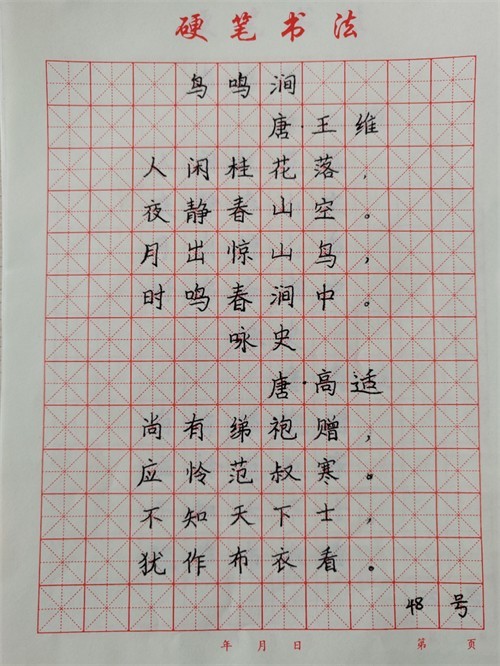 硬笔书法
鸟鸣涧
唐·王维
人闲桂花落，
夜静春山空。
月出惊山鸟，
时鸣春涧中。
咏史
唐·高适
尚有绨袍赠，
应怜范叔寒。
不知天下士，
犹作布衣看。
48号
年月日 第页